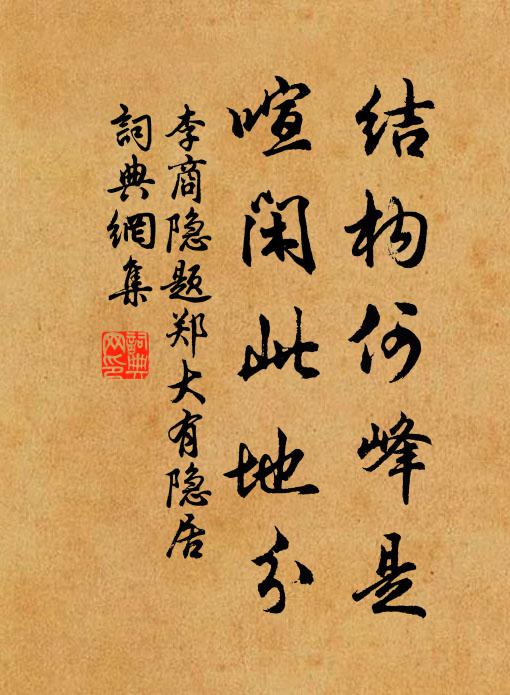 结构何峰是
喧闲此地分
李商隐题郑大有隐居
詞典網集
詞典
网印